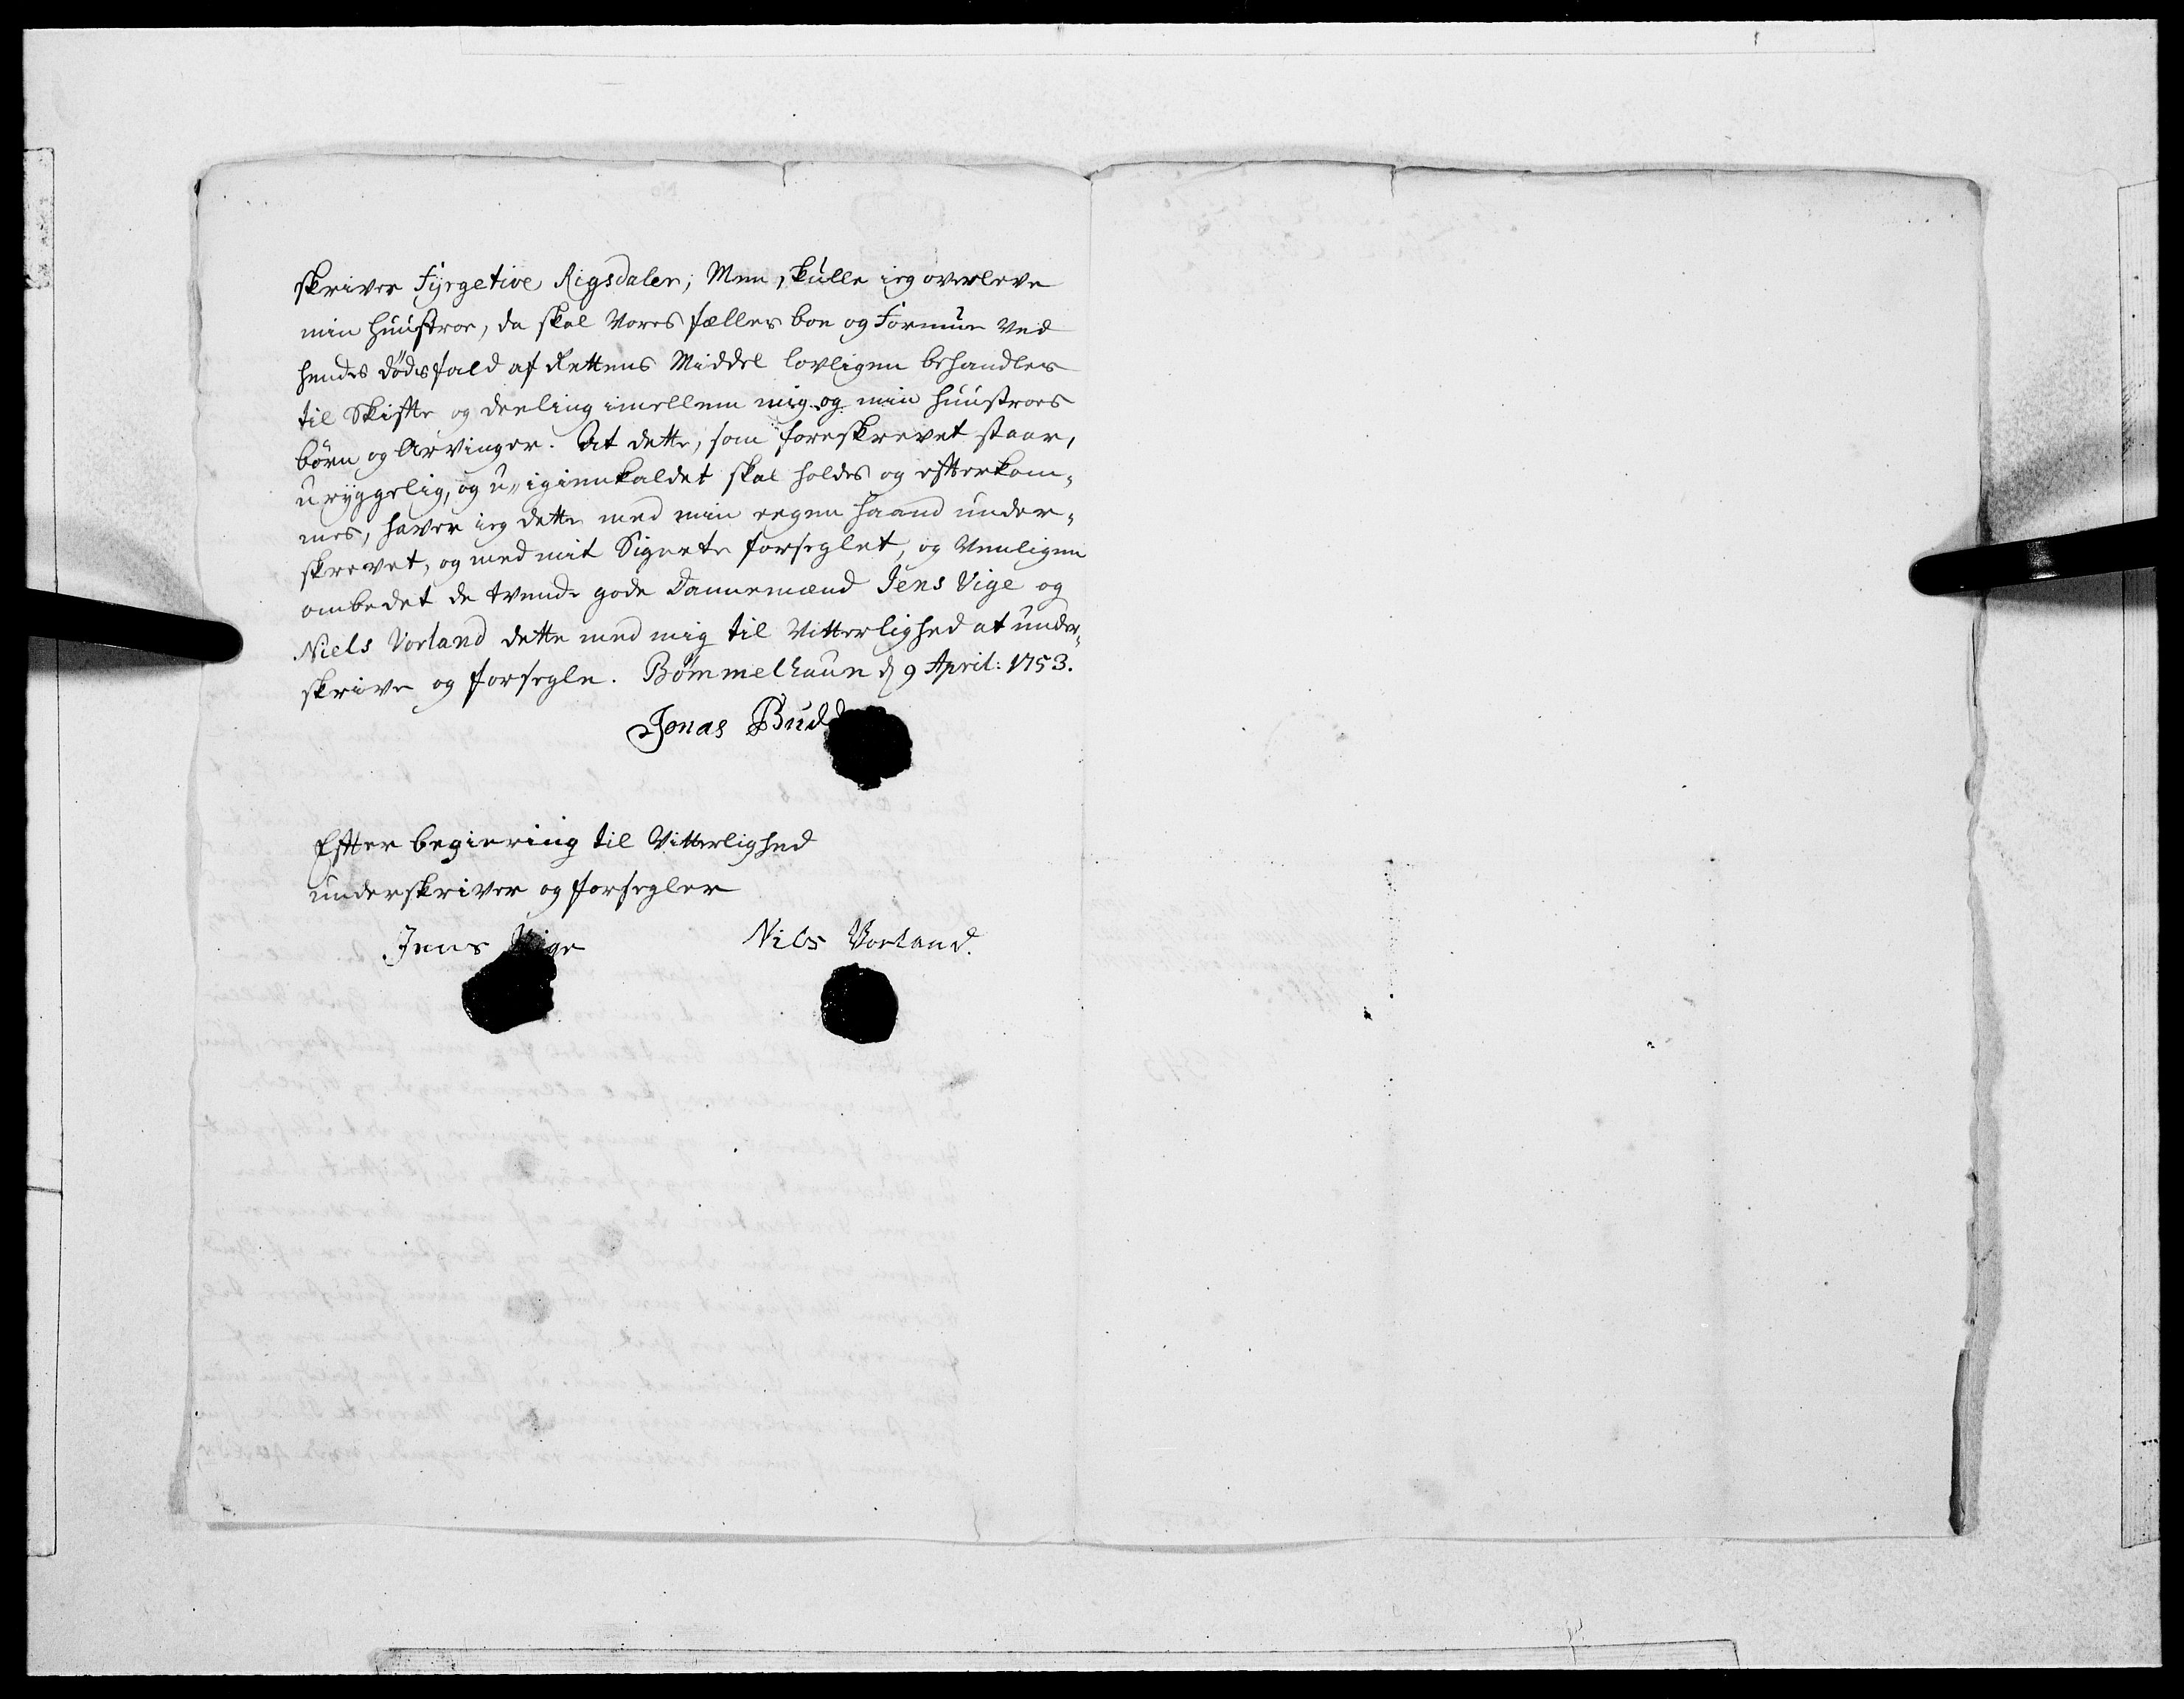 skriver Fyrgetive Rigsdaler; Men, skulle ieg overleve
min Huustroe, da skal Vores fælles boe og Formue Ved
hendes dödsfald af Rettens Middel lovligen behandles
til Skifte og deeling imellem mig og min Huustroes
börn og Arvinger. At dette, som foreskrevet staar,
uryggelig, og u-igienkaldet skal holdes og efterkom-
mes, haver ieg dette med min eegen Haand under-
skrevet, og med mit Signete forseglet, og Venligen
ombedet de tvende gode Dannemænd Jens Vige og
Niels Vorland dette med mig til Vitterlighed at under-
skrive og forsegle. Bömmelhaun d 9 April: 1753.
Jonas Budde
Efter begiering til Vitterlighed
underskriver og forsegler
Jens Vige Nils Vorland.